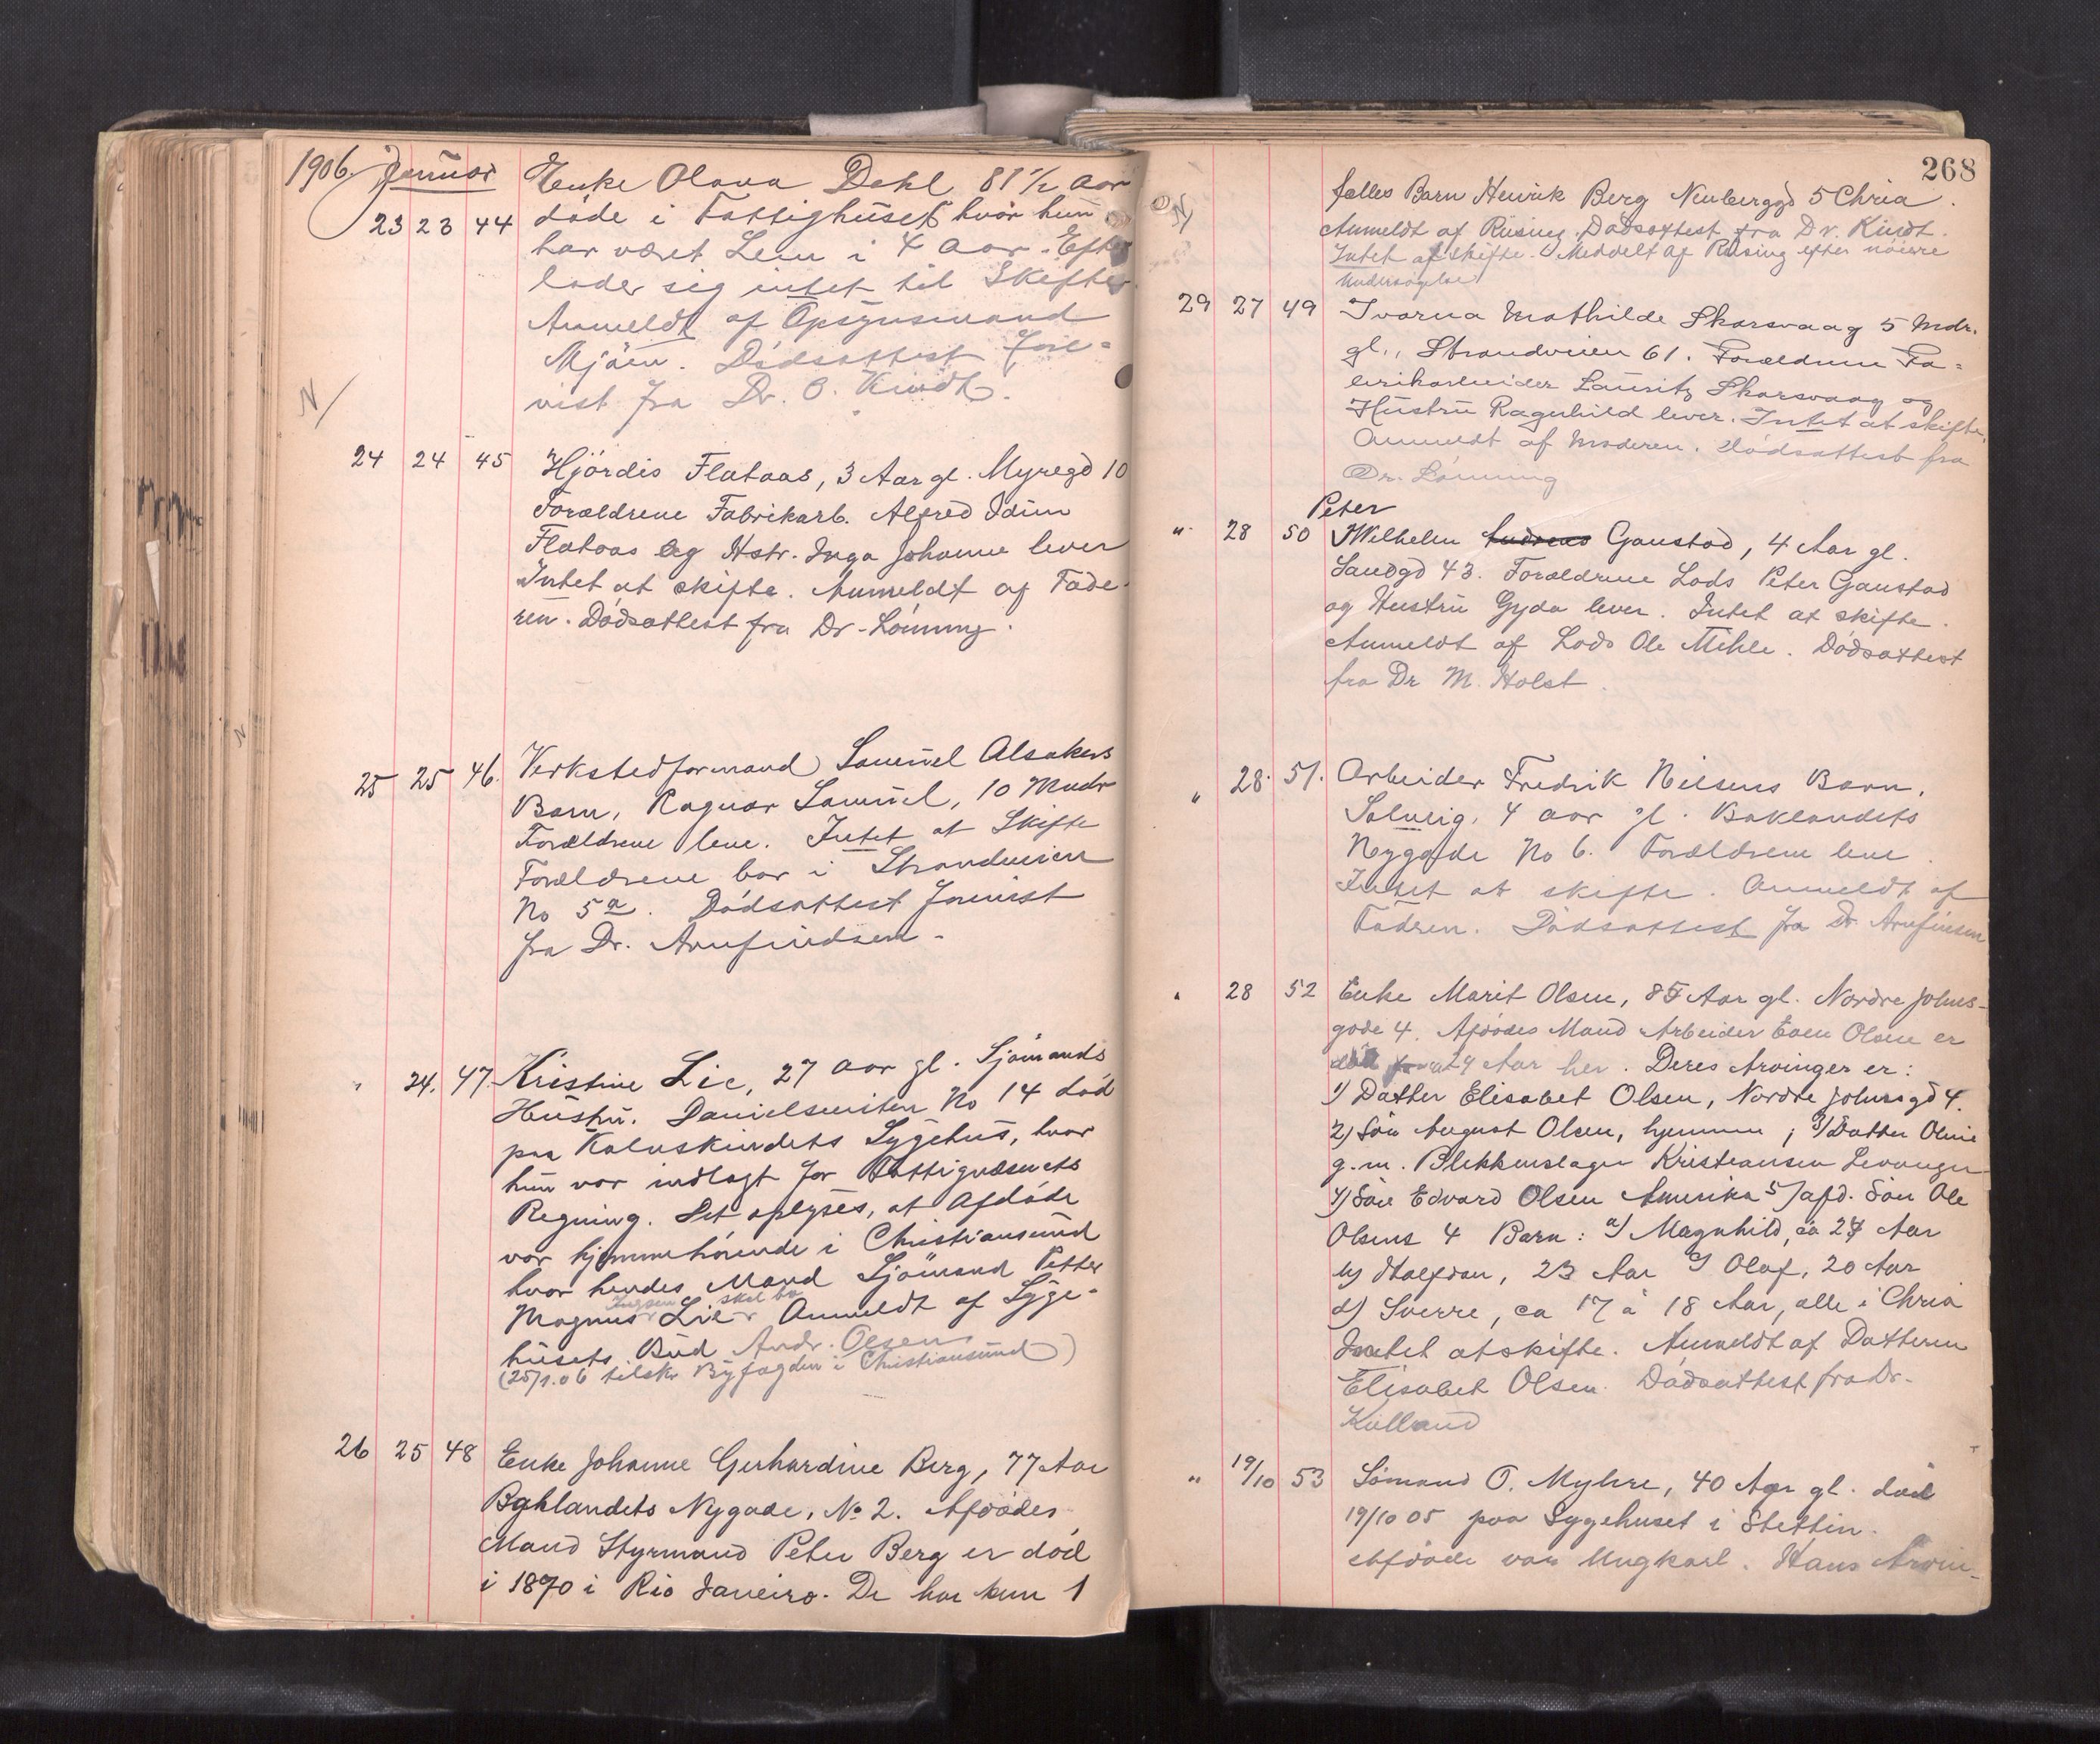 1906. Januar Enke Olava Dahl 81 1/2 Aar
23 23 44 døde i Fattighuset hvor hun
har været Lem i 4 Aar. Efter
lader sig intet til Skifte.
Anmeldt af Opsynsmand
Mjøen. Dødsattest fore-
vist fra Dr. O. Kindt.
N
24 24 45 Hjördis Flataas, 3 Aar gl. Myregd 10
Forældrene Fabrikarb. Alfred
Flataas og Hstr. Inga Johanne lever
Intet at skifte. Anmeldt af Fade-
ren. Dødsattest fra Dr. Lönning.
25 25 46. Verkstedformand Samuel Alsakers
Barn, Ragnar Samuel, 10 Mndr
Forældrene leve. Intet at Skifte
Forældrene bor i Strandveien
No 5a. Dødsattest forevist
fra Dr. Arnfindsen.
" 24. 47. Kristine Lie, 27 Aar gl. Sjømands
Hustru. Danielsveiten No 14 død
paa Kalvskindets Sygehus, hvor
hun var indlagt for Fattigvæsnets
Regning. Det oplyses, at Afdøde
var hjemmehørende i Christiansund
hvor hendes Mand Sjömand Petter
skal bo
Magnus Lie. Anmeldt af Syge-
husets Bud Andr. Olsen
(25/1.06 tilskr Byfogden i Christiansund)
26 25 48 Enke Johanne Gerhardine Berg, 77 Aar
Baklandets Nygade, No 2. Afdødes
Mand Styrmand Peter Berg er död
i 1870 i Rio Janeiro. De har kun 1
268
N
fælles Barn Henrik Berg Neuberggd 5 Chria.
Anmeldt af Rising. Dødsattest fra Dr. Kindt.
Intet at skifte. Meddelt af Rising efter nöiere
Undersøgelse
29 27 49 Ivarna Mathilde Skarsvaag 5 Mdr.
gl., Strandveien 61. Forældrene Fa-
brikarbeider Lauritz Skarsvaag og
Hustru Ragnhild lever. Intet at skifte.
Anmeldt af Moderen. Dødsattest fra
Dr. Lönning
Peter
" 28 50 Wilhelm Andreas Gaustad, 4 Aar gl.
Sandgd 43. Forældrene Lods Peter Gaustad
og Hustru Gyda lever. Intet at skifte.
Anmeldt af Lods Ole Mehle. Dødsattest
fra Dr M. Holst.
" 28. 51. Arbeider Fredrik Nilsens Barn,
Solveig, 4 Aar gl. Baklandets
Nygade No 6. Forældrene leve.
Intet at skifte. Anmeldt af
Fadren. Dødsattest fra Dr. Arnfinsen
" 28 52 Enke Marit Olsen, 85 Aar gl. Nordre Johns-
gade 4. Afdødes Mand Arbeider Even Olsen er
død for 24 Aar her. Deres Arvinger er:
1) Datter Elisabet Olsen, Nordre Johnsgd 4.
2) Sön August Olsen, hjemme; 3) Datter Oline
g.m. Blikkenslager Kristiansen Levanger
4) Sön Edvard Olsen Amerika 5) afd. Sön Ole
Olsens 4 Barn: a) Magnhild, ca 24 Aar
b) Halfdan, 23 Aar c) Olaf, 20 Aar
d) Sverre, ca 17 à 18 Aar, alle i Chria
Intet at skifte. Anmeldt af Datteren
Elisabet Olsen. Dødsattest fra Dr.
Killand
" 19/10 53 Sömand O. Myhre, 40 Aar gl. död
19/10 05 paa Sygehuset i Stettin.
Afdøde var Ungkarl. Hans Arvin-